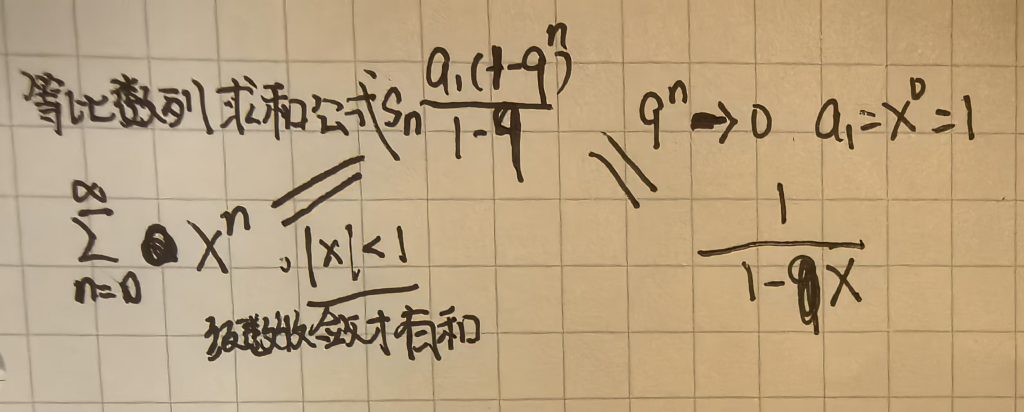 等比数列求和公式Sn a₁(1-qⁿ)/1-q qⁿ→0 a₁=x⁰=1
∞∑n=0 xⁿ, |x|<1 1/1-x
级数收敛才有和